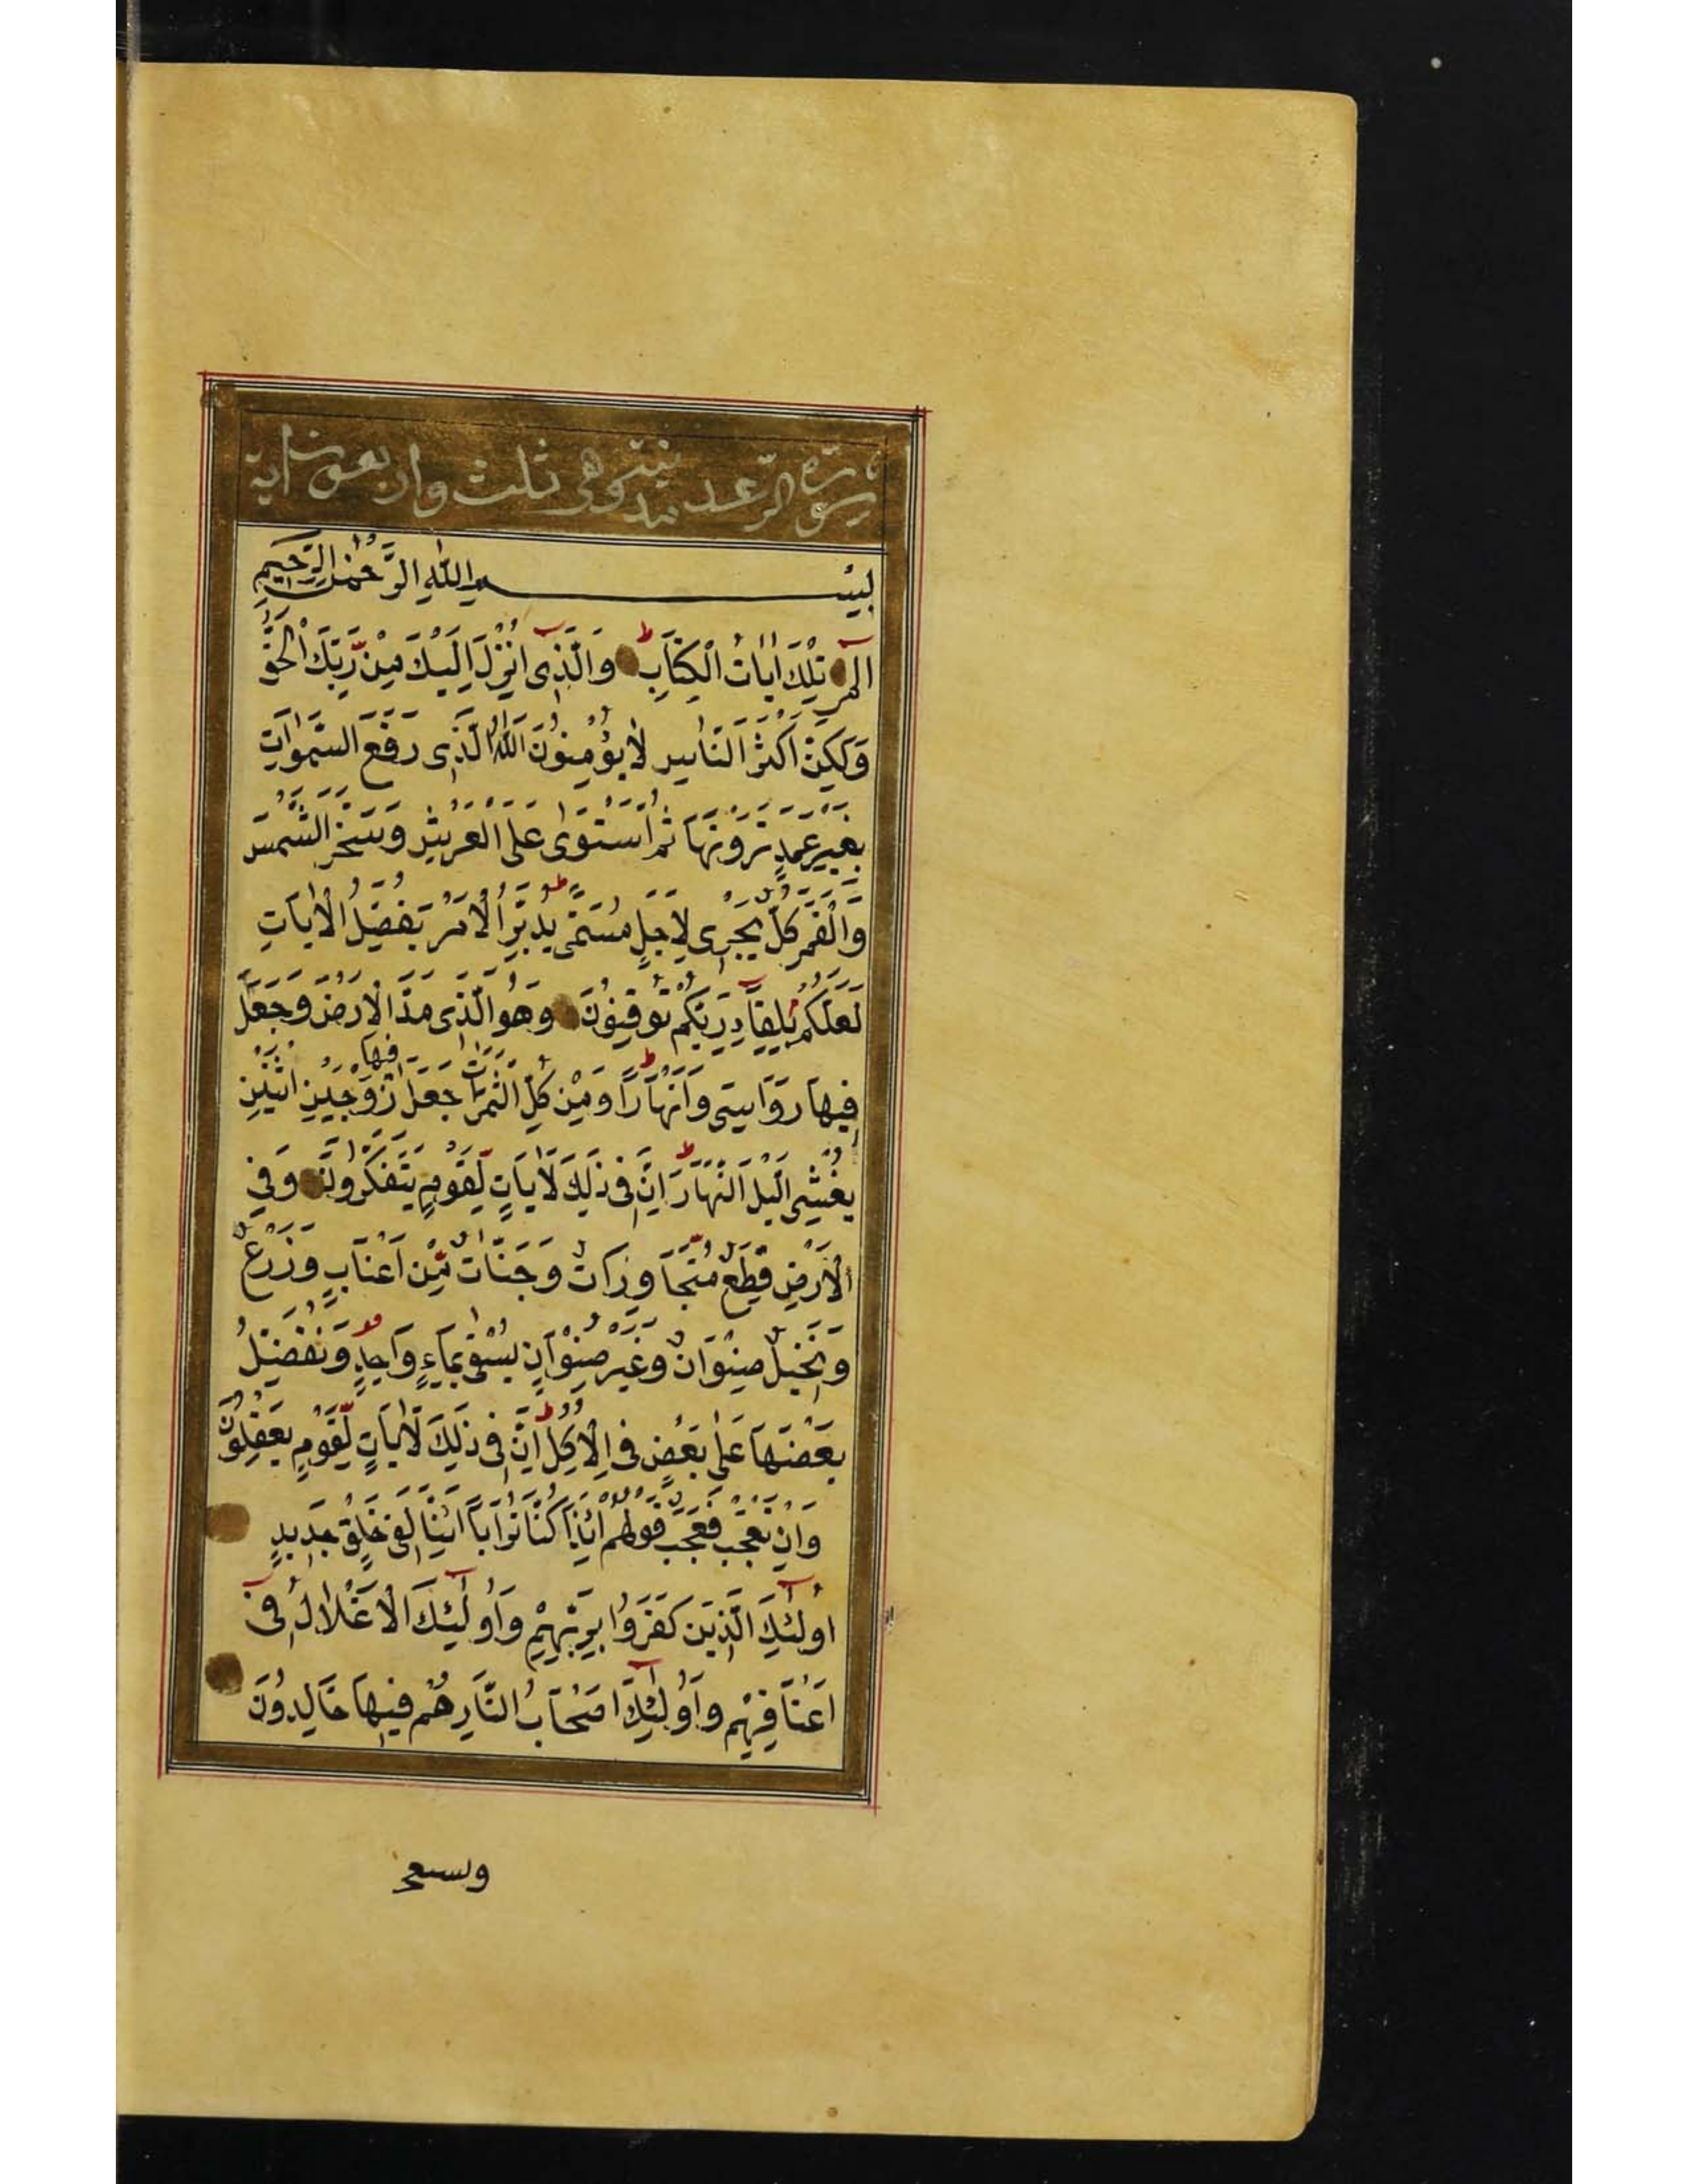 سورة الرعد مدنيتة وهى ثلث واربعون اية
بِسْمِ اللهِ الرَّحْمٰنِ الرَّحِيمِ
الٓمٓر تِلْكَ اٰيَاتُ الْكِتَابِ ط وَالَّذِى اُنْزِلَ اِلَيْكَ مِنْ رَّبِّكَ الْحَقُّ
وَلَكِنَّ اَكْثَرَ النَّاسِ لَا يُؤْمِنُونَ اَللّٰهُ الَّذِى رَفَعَ السَّمٰوَاتِ
بِغَيْرِ عَمَدٍ تَرَوْنَهَا ثُمَّ اسْتَوٰى عَلَى الْعَرْشِ وَسَخَّرَ الشَّمْسَ
وَالْقَمَرَ كُلٌّ يَجْرِى لِاَجَلٍ مُسَمًّى ط يُدَبِّرُ الْاَمْرَ يُفَصِّلُ الْاٰيَاتِ
لَعَلَّكُمْ بِلِقَاۤءِ رَبِّكُمْ تُوقِنُونَ وَهُوَ الَّذِى مَدَّ الْاَرْضَ وَجَعَلَ
فِيهَا رَوَاسِىَ وَاَنْهَارًا ط وَمِنْ كُلِّ الثَّمَرَاتِ جَعَلَ فيها زَوْجَيْنِ اثْنَيْنِ
يُغْشِى الَّيْلَ النَّهَارَ ط اِنَّ فِى ذٰلِكَ لَاٰيَاتٍ لِّقَوْمٍ يَتَفَكَّرُونَ وَفِى
الْاَرْضِ قِطَعٌ مُّتَجَاوِرَاتٌ وَجَنَّاتٌ مِّنْ اَعْنَابٍ وَزَرْعٌ
وَنَخِيلٌ صِنْوَانٌ وَغَيْرُ صِنْوَانٍ يُسْقٰى بِمَاۤءٍ وَاحِدٍ وَنُفَضِّلُ
بَعْضَهَا عَلٰى بَعْضٍ فِى الْاُكُلِ ط اِنَّ فِى ذٰلِكَ لَاٰيَاتٍ لِّقَوْمٍ يَعْقِلُونَ
وَاِنْ تَعْجَبْ فَعَجَبٌ قَوْلُهُمْ ائِذَا كُنَّا تُرَابًا ائِنَّا لَفِى خَلْقٍ جَدِيدٍ
اُولٰۤئِكَ الَّذِينَ كَفَرُوا بِرَبِّهِمْ وَاُولٰۤئِكَ الْاَغْلَالُ فِىۤ
اَعْنَاقِهِمْ وَاُولٰۤئِكَ اَصْحَابُ النَّارِ هُمْ فِيهَا خَالِدُونَ
ويستعج